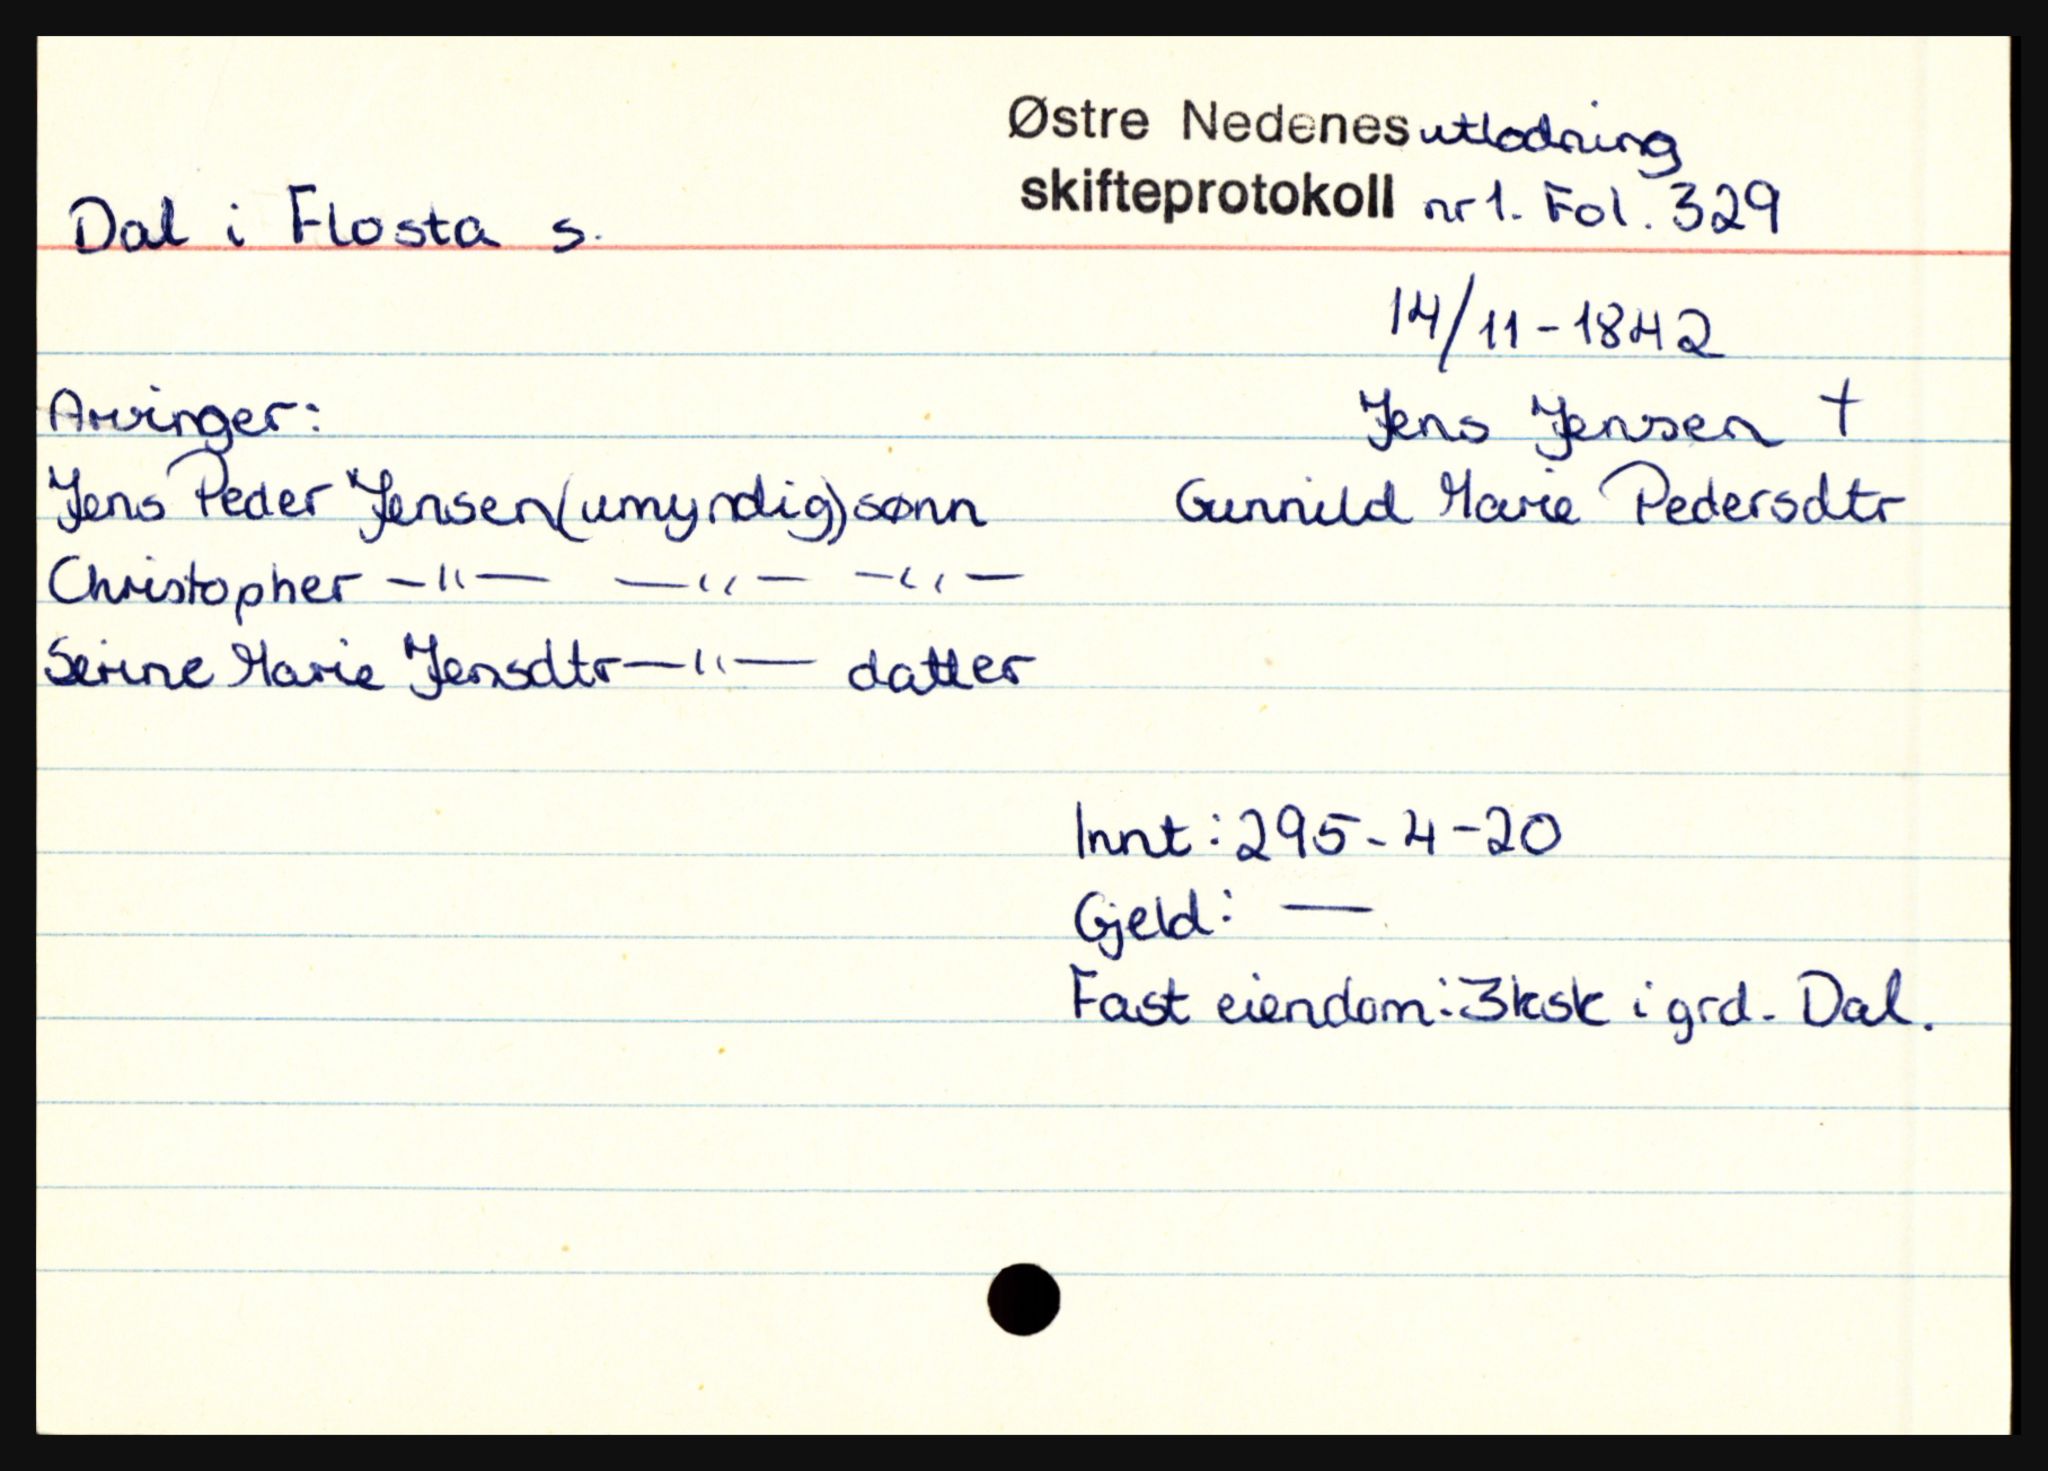 Østre Nedenes utlodning
skifteprotokoll nr 1. Fol. 329
Dal i Flosta s.
14/11-1842
Arvinger:
Jens Jensen †
Jens Peder Jensen (umyndig) sønn
Gunnild Marie Pedersdtr
Christopher —"— —"— —"—
Serine Marie Jensdtr —"— datter
Innt: 295-4-20
Gjeld: —
Fast eiendom: 3 ksk i grd. Dal.